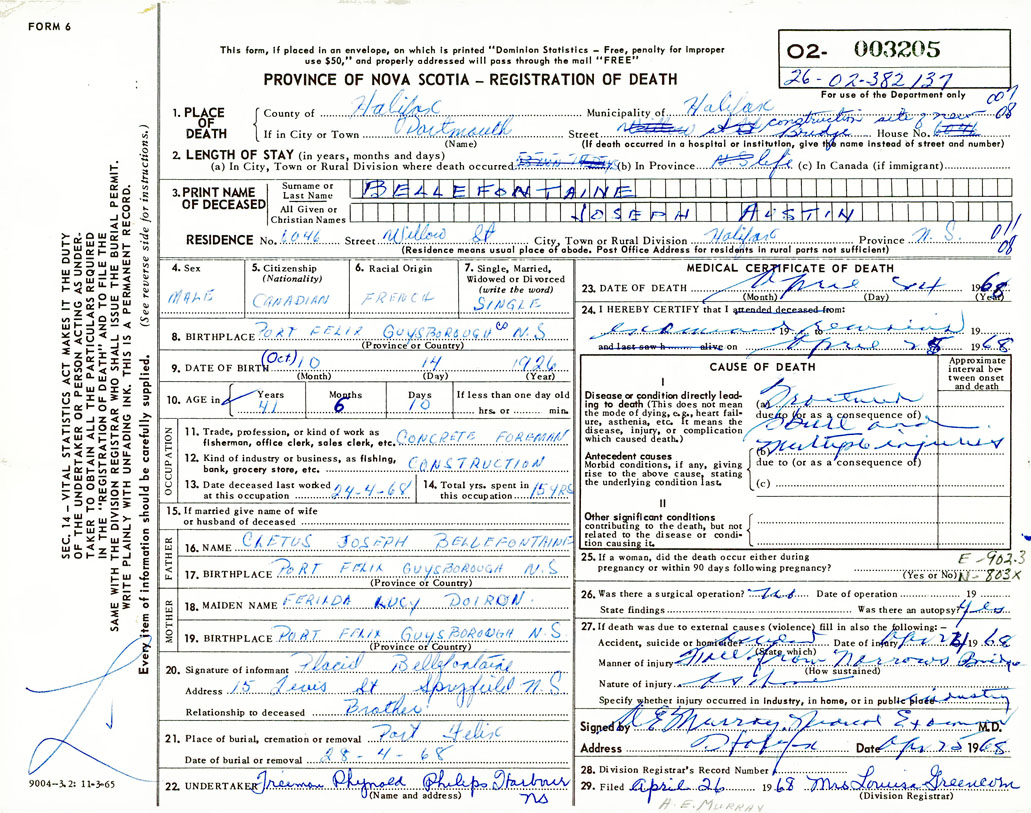 FORM 6
This form, if placed in an envelope, on which is printed "Dominion Statistics – Free, penalty for improper
use $50," and properly addressed will pass through the mail "FREE"
PROVINCE OF NOVA SCOTIA – REGISTRATION OF DEATH
02- 003205
26-02-382137
For use of the Department only
001
08
1. PLACE OF DEATH
County of Halifax Municipality of Halifax
If in City or Town Dartmouth Street construction site of new Bridge House No.
(Name) (If death occurred in a hospital or institution, give the name instead of street and number)
2. LENGTH OF STAY (in years, months and days)
(a) In City, Town or Rural Division where death occurred (b) In Province life (c) In Canada (if immigrant)
3. PRINT NAME OF DECEASED
Surname or Last Name BELLEFONTAINE
All Given or Christian Names JOSEPH AUSTIN
RESIDENCE No. 6046 Street Willow St City, Town or Rural Division Halifax Province N.S. 011
08
(Residence means usual place of abode. Post Office Address for residents in rural parts not sufficient)
4. Sex
MALE
5. Citizenship (Nationality)
CANADIAN
6. Racial Origin
FRENCH
7. Single, Married, Widowed or Divorced (write the word)
SINGLE
8. BIRTHPLACE PORT FELIX GUYSBOROUGH CO N.S
(Province or Country)
9. DATE OF BIRTH (Oct) 10 14 1926
(Month) (Day) (Year)
10. AGE in Years 41 Months 6 Days 10 If less than one day old hrs. or min.
OCCUPATION
11. Trade, profession, or kind of work as fisherman, office clerk, sales clerk, etc. CONCRETE FOREMAN
12. Kind of industry or business, as fishing, bank, grocery store, etc. CONSTRUCTION
13. Date deceased last worked at this occupation 24-4-68
14. Total yrs. spent in this occupation 15 YRS
15. If married give name of wife or husband of deceased
FATHER
16. NAME CLETUS JOSEPH BELLEFONTAINE
17. BIRTHPLACE PORT FELIX GUYSBOROUGH N.S
(Province or Country)
MOTHER
18. MAIDEN NAME FERINDA LUCY DOIRON
19. BIRTHPLACE PORT FELIX GUYSBOROUGH N.S
(Province or Country)
20. Signature of informant Placid Bellefontaine
Address 15 Lewis St Spryfield N.S
Relationship to deceased Brother
21. Place of burial, cremation or removal Port Felix
Date of burial or removal 28-4-68
22. UNDERTAKER Freeman Philips Harbour
NS
(Name and address)
MEDICAL CERTIFICATE OF DEATH
23. DATE OF DEATH April 24 1968
(Month) (Day) (Year)
24. I HEREBY CERTIFY that I attended deceased from:
examined 19 to remains 19
and last saw h alive on April 1968
CAUSE OF DEATH
Approximate interval between onset and death
I
Disease or condition directly leading to death (This does not mean the mode of dying, e.g., heart failure, asthenia, etc. It means the disease, injury, or complication which caused death.)
(a) Fractured
due to (or as a consequence of)
skull and
(b) multiple injuries
due to (or as a consequence of)
(c)
Antecedent causes
Morbid conditions, if any, giving rise to the above cause, stating the underlying condition last.
II
Other significant conditions contributing to the death, but not related to the disease or condition causing it.
25. If a woman, did the death occur either during
pregnancy or within 90 days following pregnancy?
(Yes or No)
E-902.3
N-803X
26. Was there a surgical operation? no Date of operation 19
State findings Was there an autopsy? Yes
27. If death was due to external causes (violence) fill in also the following: –
Accident, suicide or homicide? Accident Date of injury Apr 1968
(State which)
Manner of injury Fall from Narrows Bridge
(How sustained)
Nature of injury As above
Specify whether injury occurred in industry, in home, or in public place industry
Signed by A E Murray Medical Examiner M.D.
Address Halifax Date Apr 25 1968
28. Division Registrar's Record Number
29. Filed April 26 1968 Mrs Louisa Greencorn
(Division Registrar)
A.E. MURRAY
SEC. 14 – VITAL STATISTICS ACT MAKES IT THE DUTY
OF THE UNDERTAKER OR PERSON ACTING AS UNDER-
TAKER TO OBTAIN ALL THE PARTICULARS REQUIRED
IN THE "REGISTRATION OF DEATH" AND TO FILE THE
SAME WITH THE DIVISION REGISTRAR WHO SHALL ISSUE THE BURIAL PERMIT.
WRITE PLAINLY WITH UNFADING INK. THIS IS A PERMANENT RECORD.
Every item of information should be carefully supplied. (See reverse side for instructions.)
9004-3.2: 11-3-65